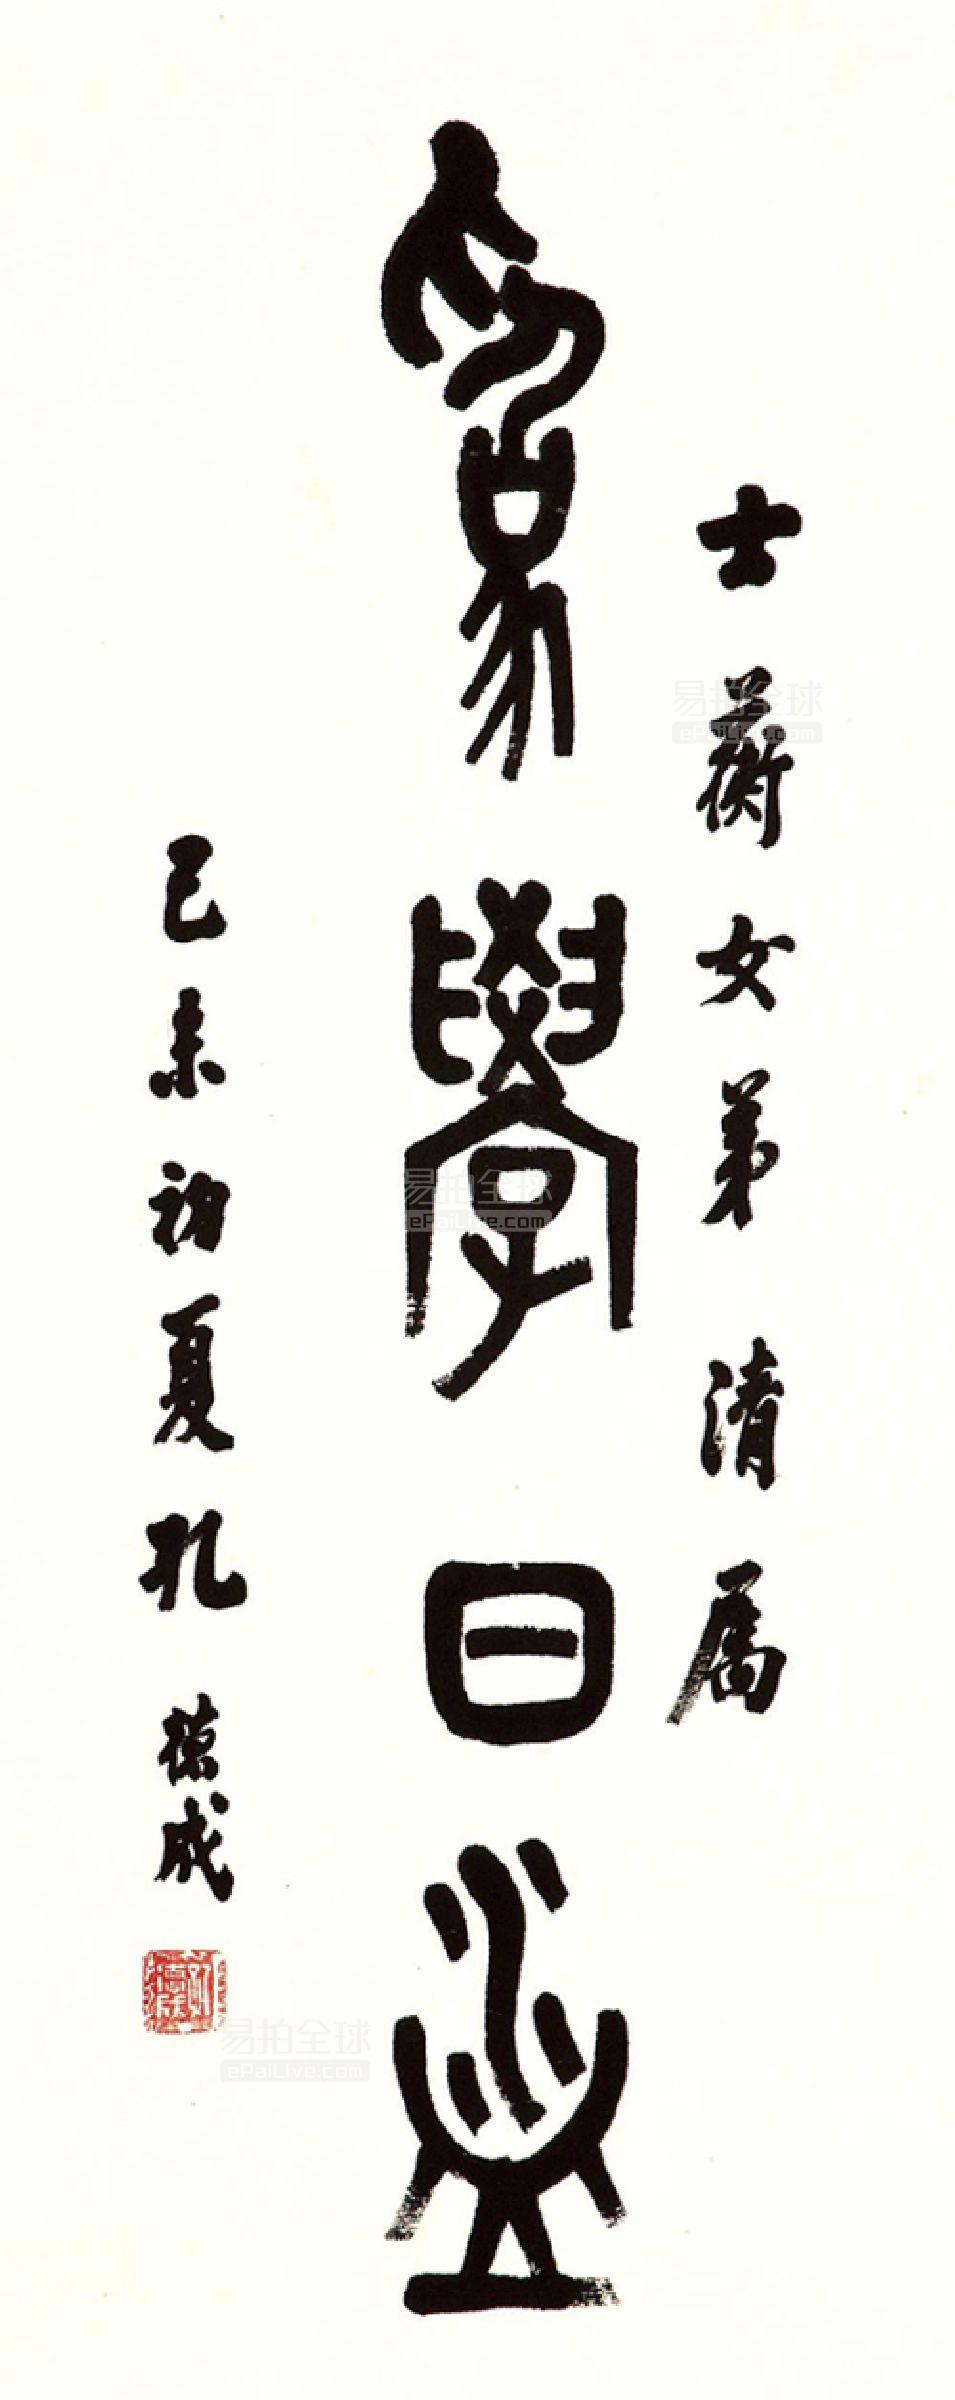 士蘅女弟清属
為學日益
己未初夏孔德成
易拍全球
ePaiLive.com
易拍全球
ePaiLive.com
易拍全球
ePaiLive.com